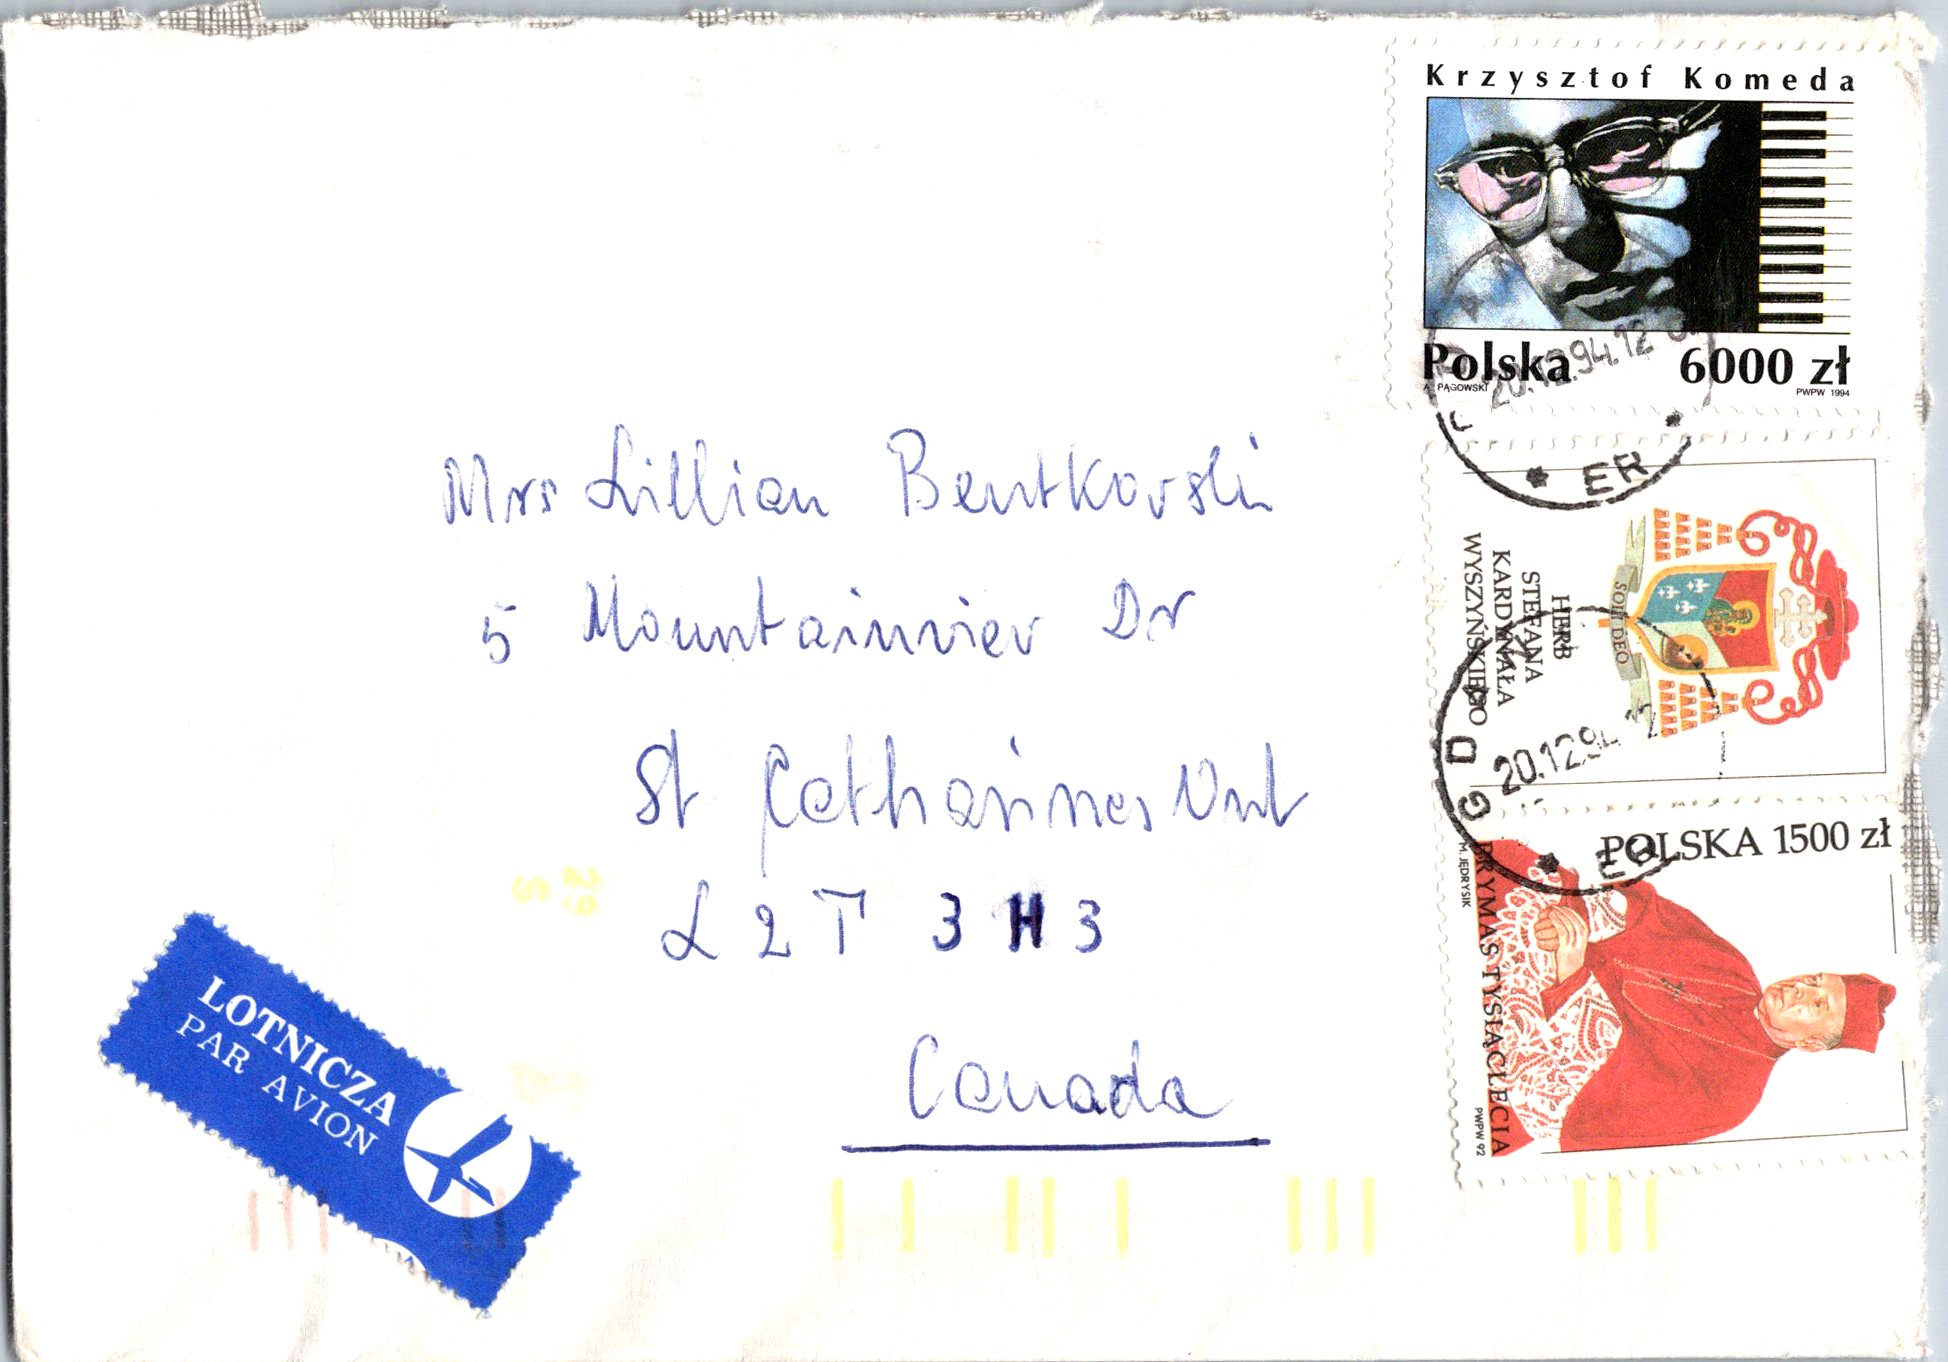 Krzysztof Komeda
Polska 6000 zł
A. PĄGOWSKI
PWPW 1994
20.12.94.12
* ER *
HERB
STEFANA
KARDYNAŁA
WYSZYŃSKIEGO
SOLI DEO
20.12.94
POLSKA 1500 zł
PRYMAS TYSIĄCLECIA
M. JĘDRYSIK
PWPW 92
Mrs Lillian Bentkovski
5 Mountainview Dr
St Catharines Ont
L2T 3H3
Canada
LOTNICZA
PAR AVION